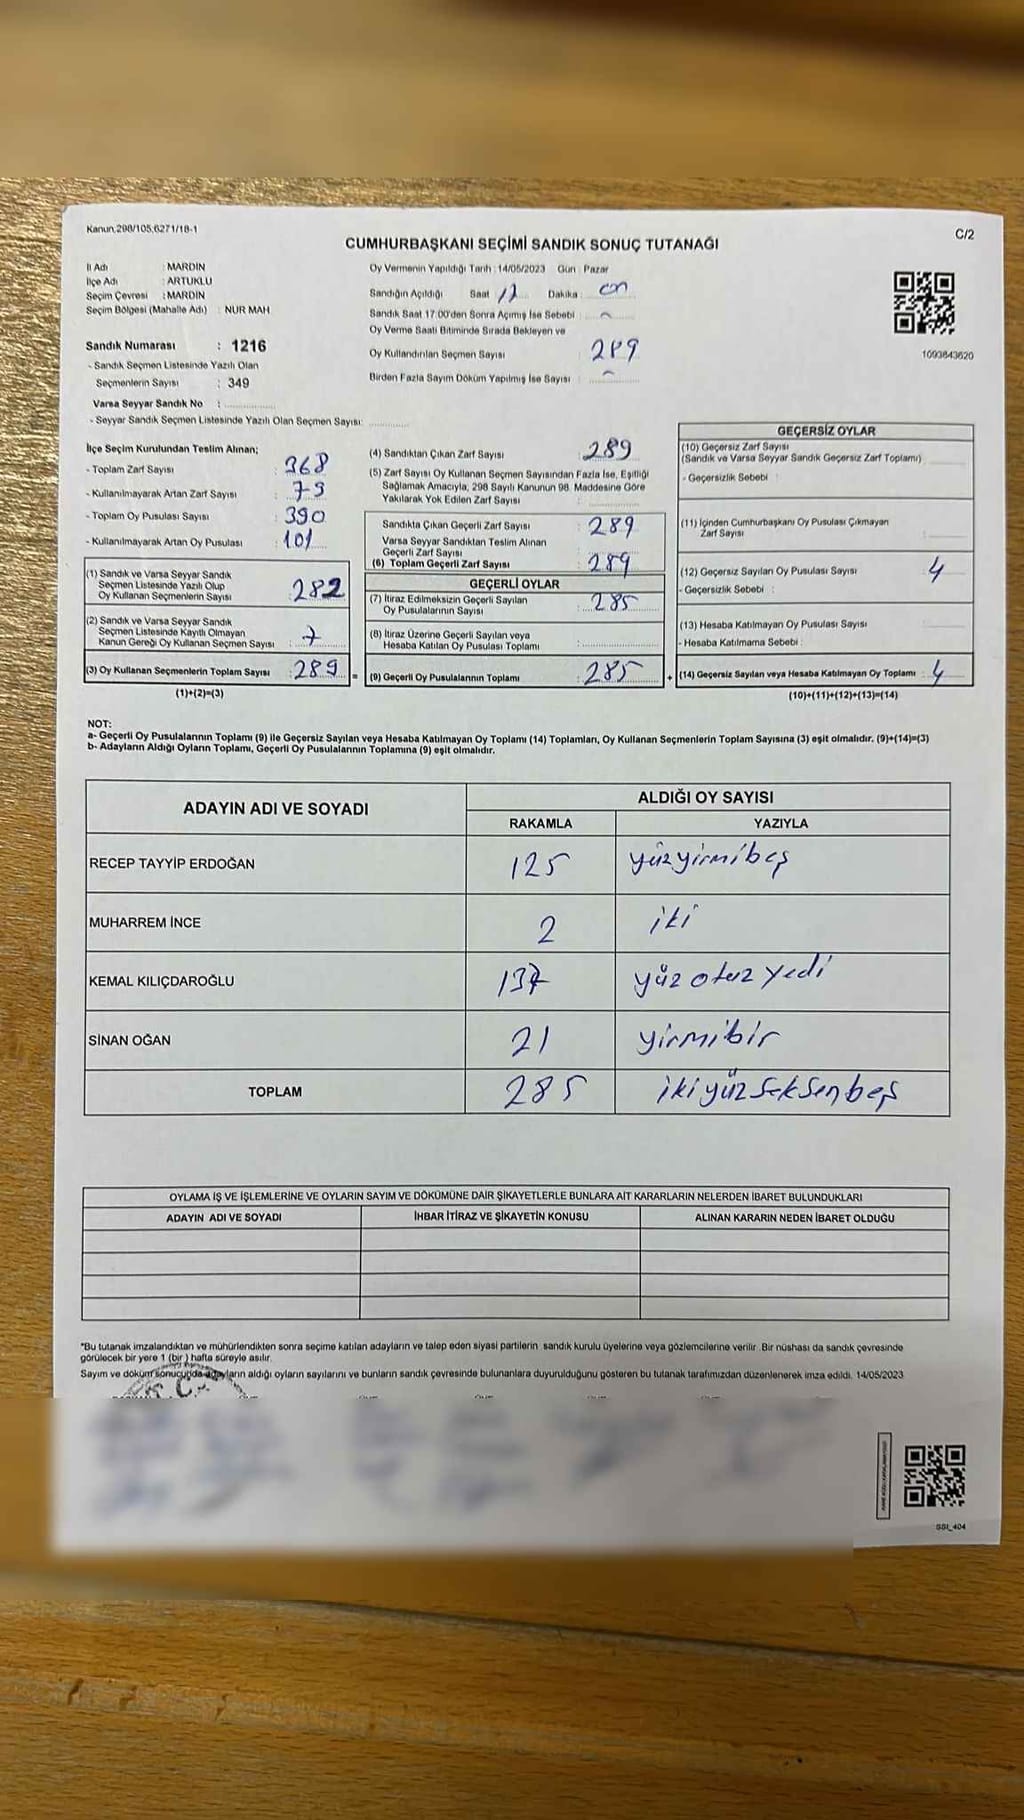 Kanun,298/105;6271/18-1
C/2
CUMHURBAŞKANI SEÇİMİ SANDIK SONUÇ TUTANAĞI
İl Adı : MARDİN
İlçe Adı : ARTUKLU
Seçim Çevresi : MARDİN
Seçim Bölgesi (Mahalle Adı) : NUR MAH
Sandık Numarası : 1216
- Sandık Seçmen Listesinde Yazılı Olan
Seçmenlerin Sayısı : 349
Varsa Seyyar Sandık No :
- Seyyar Sandık Seçmen Listesinde Yazılı Olan Seçmen Sayısı:
Oy Vermenin Yapıldığı Tarih : 14/05/2023 Gün : Pazar
Sandığın Açıldığı Saat 17 Dakika : on
Sandık Saat 17:00'den Sonra Açımış İse Sebebi :
Oy Verme Saati Bitiminde Sırada Bekleyen ve
Oy Kullandırılan Seçmen Sayısı 289
Birden Fazla Sayım Döküm Yapılmış İse Sayısı :
1093843620
İlçe Seçim Kurulundan Teslim Alınan;
- Toplam Zarf Sayısı : 368
- Kullanılmayarak Artan Zarf Sayısı : 79
- Toplam Oy Pusulası Sayısı : 390
- Kullanılmayarak Artan Oy Pusulası : 101
(1) Sandık ve Varsa Seyyar Sandık
Seçmen Listesinde Yazılı Olup
Oy Kullanan Seçmenlerin Sayısı : 282
(2) Sandık ve Varsa Seyyar Sandık
Seçmen Listesinde Kayıtlı Olmayan
Kanun Gereği Oy Kullanan Seçmen Sayısı : 7
(3) Oy Kullanan Seçmenlerin Toplam Sayısı : 289
(1)+(2)=(3)
(4) Sandıktan Çıkan Zarf Sayısı : 289
(5) Zarf Sayısı Oy Kullanan Seçmen Sayısından Fazla İse, Eşitliği
Sağlamak Amacıyla, 298 Sayılı Kanunun 98. Maddesine Göre
Yakılarak Yok Edilen Zarf Sayısı :
Sandıkta Çıkan Geçerli Zarf Sayısı : 289
Varsa Seyyar Sandıktan Teslim Alınan
Geçerli Zarf Sayısı
(6) Toplam Geçerli Zarf Sayısı : 289
GEÇERLİ OYLAR
(7) İtiraz Edilmeksizin Geçerli Sayılan
Oy Pusulalarının Sayısı : 285
(8) İtiraz Üzerine Geçerli Sayılan veya
Hesaba Katılan Oy Pusulası Toplamı :
= (9) Geçerli Oy Pusulalarının Toplamı : 285
GEÇERSİZ OYLAR
(10) Geçersiz Zarf Sayısı
(Sandık ve Varsa Seyyar Sandık Geçersiz Zarf Toplamı)
- Geçersizlik Sebebi :
(11) İçinden Cumhurbaşkanı Oy Pusulası Çıkmayan
Zarf Sayısı :
(12) Geçersiz Sayılan Oy Pusulası Sayısı : 4
- Geçersizlik Sebebi :
(13) Hesaba Katılmayan Oy Pusulası Sayısı :
- Hesaba Katılmama Sebebi :
+ (14) Geçersiz Sayılan veya Hesaba Katılmayan Oy Toplamı : 4
(10)+(11)+(12)+(13)=(14)
NOT:
a- Geçerli Oy Pusulalarının Toplamı (9) ile Geçersiz Sayılan veya Hesaba Katılmayan Oy Toplamı (14) Toplamları, Oy Kullanan Seçmenlerin Toplam Sayısına (3) eşit olmalıdır. (9)+(14)=(3)
b- Adayların Aldığı Oyların Toplamı, Geçerli Oy Pusulalarının Toplamına (9) eşit olmalıdır.
ADAYIN ADI VE SOYADI
ALDIĞI OY SAYISI
RAKAMLA YAZIYLA
RECEP TAYYİP ERDOĞAN 125 yüzyirmibeş
MUHARREM İNCE 2 iki
KEMAL KILIÇDAROĞLU 137 yüz otuz yedi
SİNAN OĞAN 21 yirmibir
TOPLAM 285 ikiyüz seksen beş
OYLAMA İŞ VE İŞLEMLERİNE VE OYLARIN SAYIM VE DÖKÜMÜNE DAİR ŞİKAYETLERLE BUNLARA AİT KARARLARIN NELERDEN İBARET BULUNDUKLARI
ADAYIN ADI VE SOYADI İHBAR İTİRAZ VE ŞİKAYETİN KONUSU ALINAN KARARIN NEDEN İBARET OLDUĞU
*Bu tutanak imzalandıktan ve mühürlendikten sonra seçime katılan adayların ve talep eden siyasi partilerin sandık kurulu üyelerine veya gözlemcilerine verilir. Bir nüshası da sandık çevresinde
görülecek bir yere 1 (bir) hafta süreyle asılır.
Sayım ve döküm sonucunda adayların aldığı oyların sayılarını ve bunların sandık çevresinde bulunanlara duyurulduğunu gösteren bu tutanak tarafımızdan düzenlenerek imza edildi. 14/05/2023
SSI_404